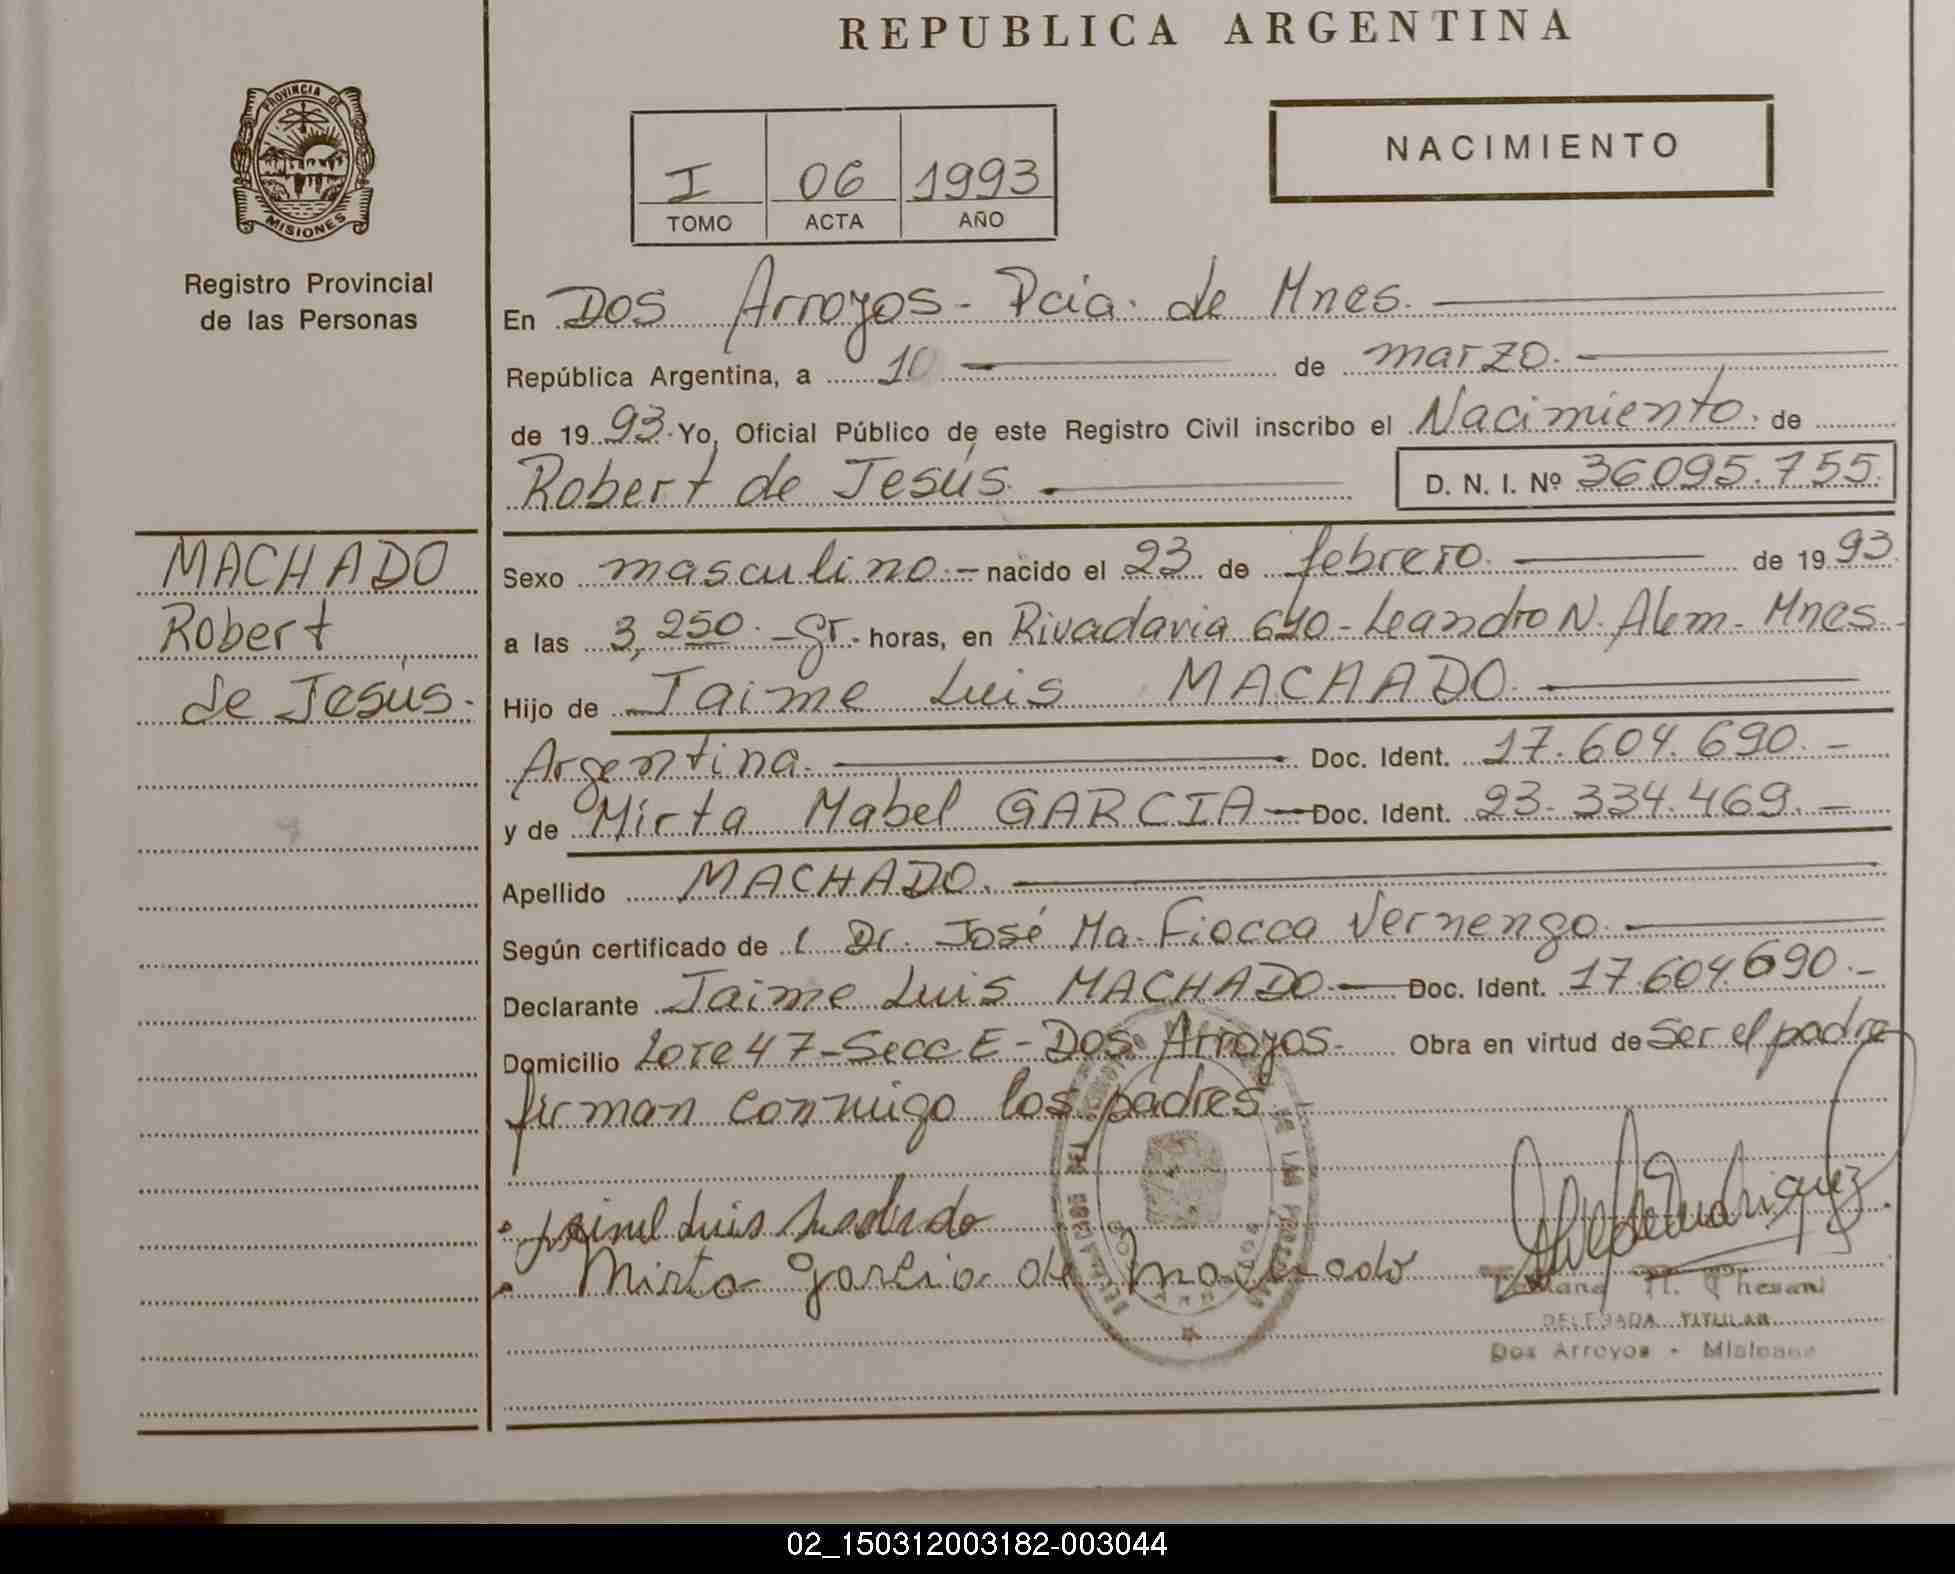 REPUBLICA ARGENTINA
PROVINCIA DE
MISIONES
Registro Provincial
de las Personas
I 06 1993
TOMO ACTA AÑO
NACIMIENTO
En Dos Arroyos - Pcia. de Mnes.
República Argentina, a 10 de marzo.
de 1993. Yo, Oficial Público de este Registro Civil inscribo el Nacimiento. de
Robert de Jesús. D. N. I. Nº 36095.755.
MACHADO
Robert
de Jesús.
Sexo masculino.- nacido el 23 de febrero. de 1993.
a las 3,250.-gr. horas, en Rivadavia 640 - Leandro N. Alem - Mnes.
Hijo de Jaime Luis MACHADO.
Argentina. Doc. Ident. 17.604.690.-
y de Mirta Mabel GARCIA Doc. Ident. 23.334.469.-
Apellido MACHADO.
Según certificado de l Dr. José Ma. Fiocca Vernengo.
Declarante Jaime Luis MACHADO.- Doc. Ident. 17.604.690.-
Domicilio Lote 47 - Secc E - Dos Arroyos. Obra en virtud de Ser el padre
firman conmigo los padres.-
Luis
Mirta Garcia de Machado
DELEGADA TITULAR
Dos Arroyos - Misiones
02_150312003182-003044